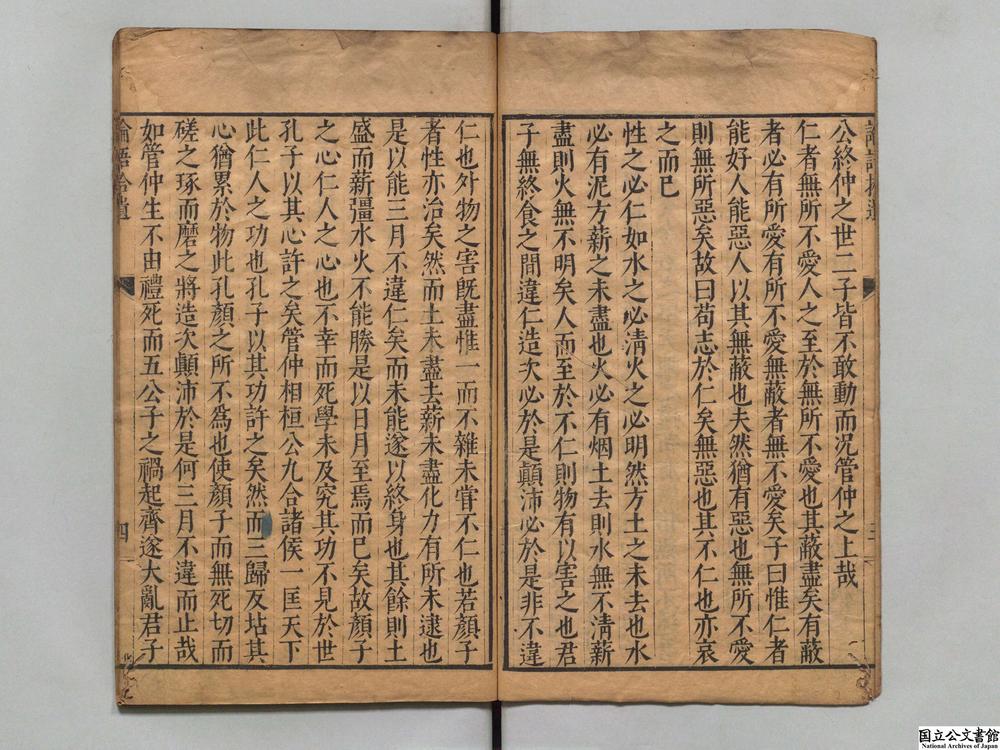 論語拾遺
三
公終仲之世二子皆不敢動而况管仲之上哉
仁者無所不愛人之至於無所不愛也其蔽盡矣有蔽
者必有所愛有所不愛無蔽者無不愛矣子曰惟仁者
能好人能惡人以其無蔽也夫然猶有惡也無所不愛
則無所惡矣故曰苟志於仁矣無惡也其不仁也亦哀
之而已
性之必仁如水之必清火之必明然方土之未去也水
必有泥方薪之未盡也火必有烟土去則水無不清薪
盡則火無不明矣人而至於不仁則物有以害之也君
子無終食之間違仁造次必於是顛沛必於是非不違
仁也外物之害旣盡惟一而不雜未嘗不仁也若顔子
者性亦治矣然而土未盡去薪未盡化力有所未逮也
是以能三月不違仁矣而未能遂以終身也其餘則土
盛而薪彊水火不能勝是以日月至焉而已矣故顔子
之心仁人之心也不幸而死學未及究其功不見於世
孔子以其心許之矣管仲相桓公九合諸侯一匡天下
此仁人之功也孔子以其功許之矣然而三歸反坫其
心猶累於物此孔顔之所不爲也使顔子而無死切而
磋之琢而磨之將造次顛沛於是何三月不違而止哉
如管仲生不由禮死而五公子之禍起齊遂大亂君子
論語拾遺
四
国立公文書館
National Archives of Japan